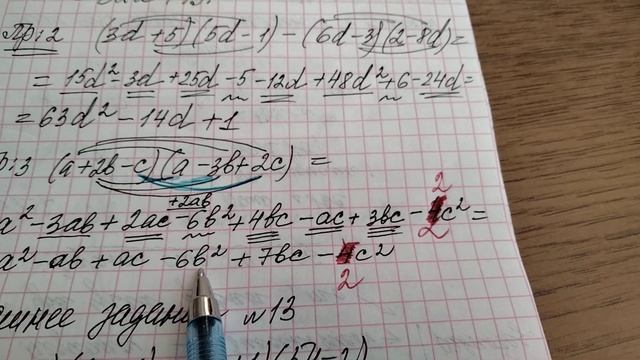 Пр:2 (3d+5)(5d-1)-(6d-3)(2-8d)=
= 15d²-3d+25d-5-12d+48d²+6-24d=
= 63d²-14d+1
р:3 (a+2b-c)(a-3b+2c)=
+2ab
a²-3ab+2ac-6b²+4bc-ac+3bc-2c²=
a²-ab+ac-6b²+7bc-2c²
шнее задание №13